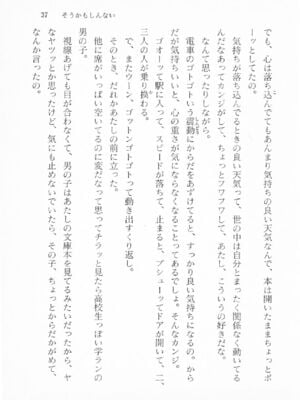 37　そうかもしんない
でも、心は落ち込んでてもあんまり気持ちの良い天気なんで、本は開いたままちょっとボ
ーッとしてたの。
気持ちが落ち込んでるときの良い天気って、世の中は自分とまったく関係なく動いてる
んだなあってカンジがして、ちょっとフワフワして、あたし、こういうの好きだな。
なんて思ったりしながら。
電車のゴトゴトいう震動にからだをあずけてると、すっかり良い気持ちになっちゃって、
だが気持ちいいと、心の重さが気にならなくなることってあるでしょ。そんなカンジ。
ゴオーッて駅に入って、スピードが落ちて、止まると、プシューッてドアが開いて、二、
三人の人が乗り換わる。
で、またウーン、ゴットンゴトゴトって動き出すくり返し。
そのとき、だれかあたしの前に立った。
他に席がいっぱい空いてるのに変だなって思ってチラッと見たら高校生っぽい学ランの
男の子。
視線あげても目が合わなくて、男の子はあたしの文庫本を見てるみたいだったから、ヤ
なヤツッとか思ったけど、気にも止めないでいたら、その子、ちょっとからだかがめて、
なんか言ったの。